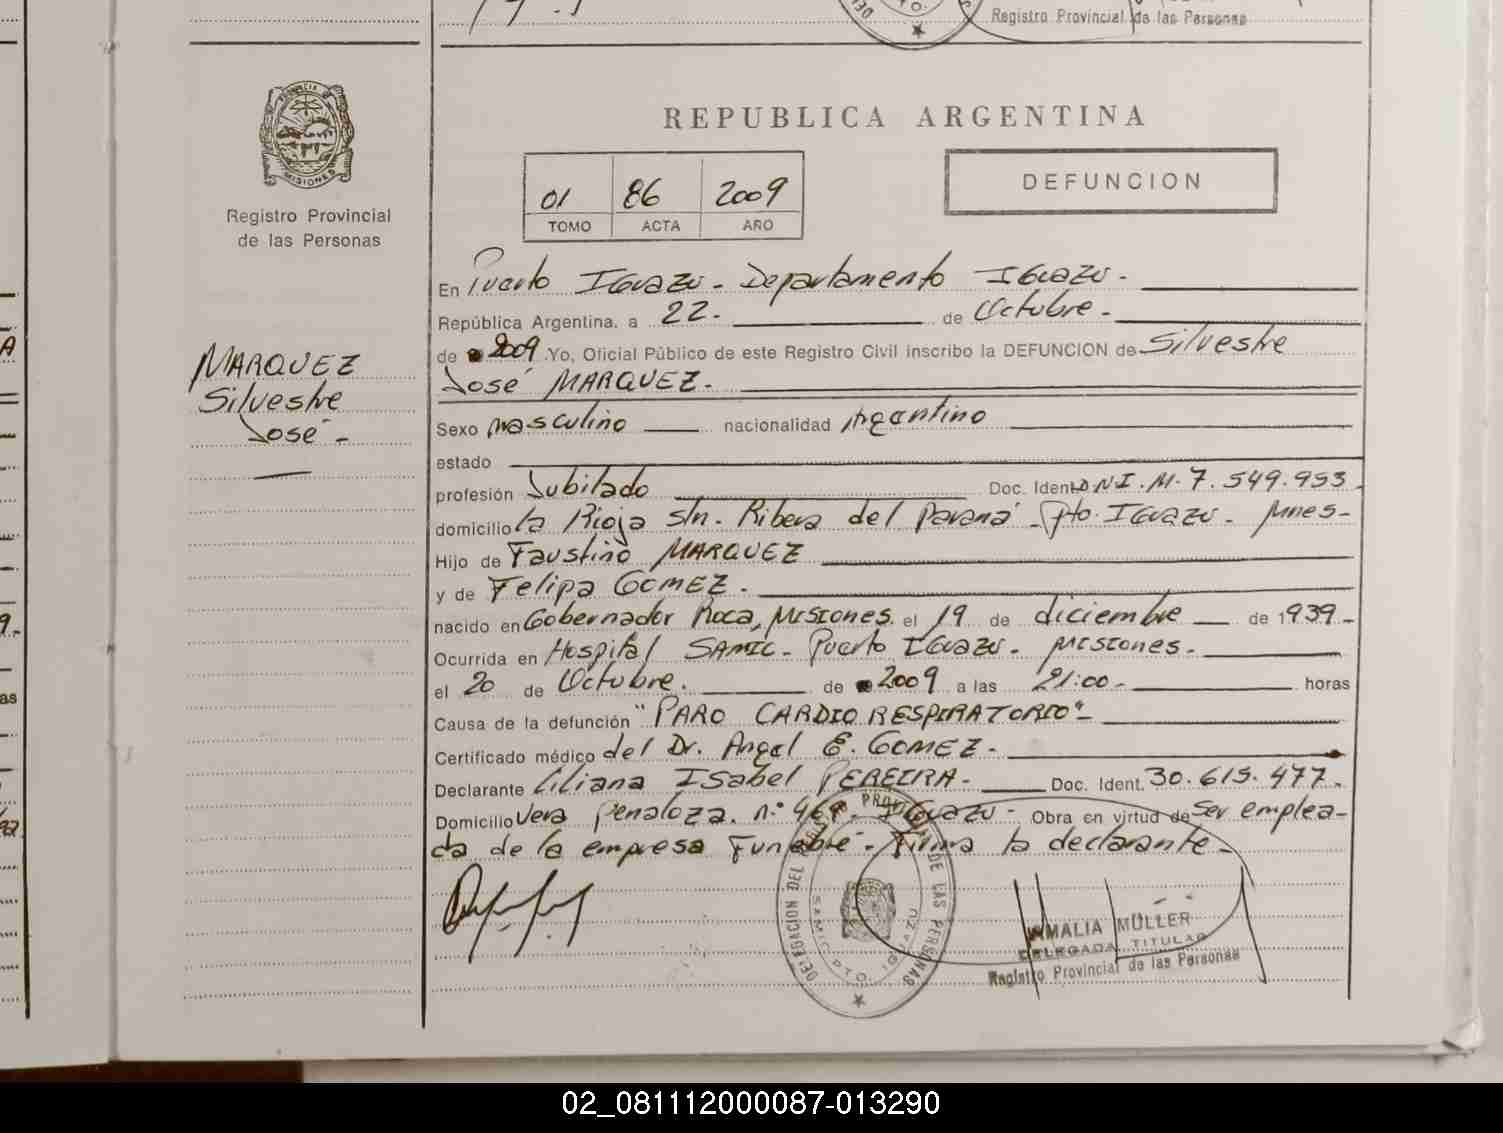 Registro Provincial de las Personas
PROVINCIA DE
MISIONES
Registro Provincial
de las Personas
MARQUEZ
Silvestre
José -
REPUBLICA ARGENTINA
01 86 2009
TOMO ACTA AÑO
DEFUNCION
En Puerto IGUAZU - Departamento IGUAZU -
República Argentina, a 22 - de Octubre -
de 2009 Yo, Oficial Público de este Registro Civil inscribo la DEFUNCION de Silvestre
José MARQUEZ -
Sexo masculino nacionalidad Argentino
estado
profesión Jubilado Doc. Ident. DNI. M. 7.549.953.
domicilio la Rioja s/n. Ribera del Paraná - Pto. IGUAZU - Mnes -
Hijo de Faustino MARQUEZ
y de Felipa GOMEZ -
nacido en Gobernador Roca, MISIONES. el 19 de diciembre de 1939 -
Ocurrida en Hospital SAMIC - Puerto IGUAZU - MISIONES -
el 20 de Octubre. de 2009 a las 21:00 - horas
Causa de la defunción "PARO CARDIO RESPIRATORIO" -
Certificado médico del Dr. Angel E. GOMEZ -
Declarante Liliana ISabel PEREIRA - Doc. Ident. 30.615.477 -
Domicilio Vera Penaloza. n.° IGUAZU - Obra en virtud de Ser emplea-
da de la empresa Funebre - Firma la declarante -
DELEGACION DEL REGISTRO PROVINCIAL DE LAS PERSONAS
SAMIC PTO. IGUAZU
AMALIA MÜLLER
DELEGADA TITULAR
Registro Provincial de las Personas
02_081112000087-013290